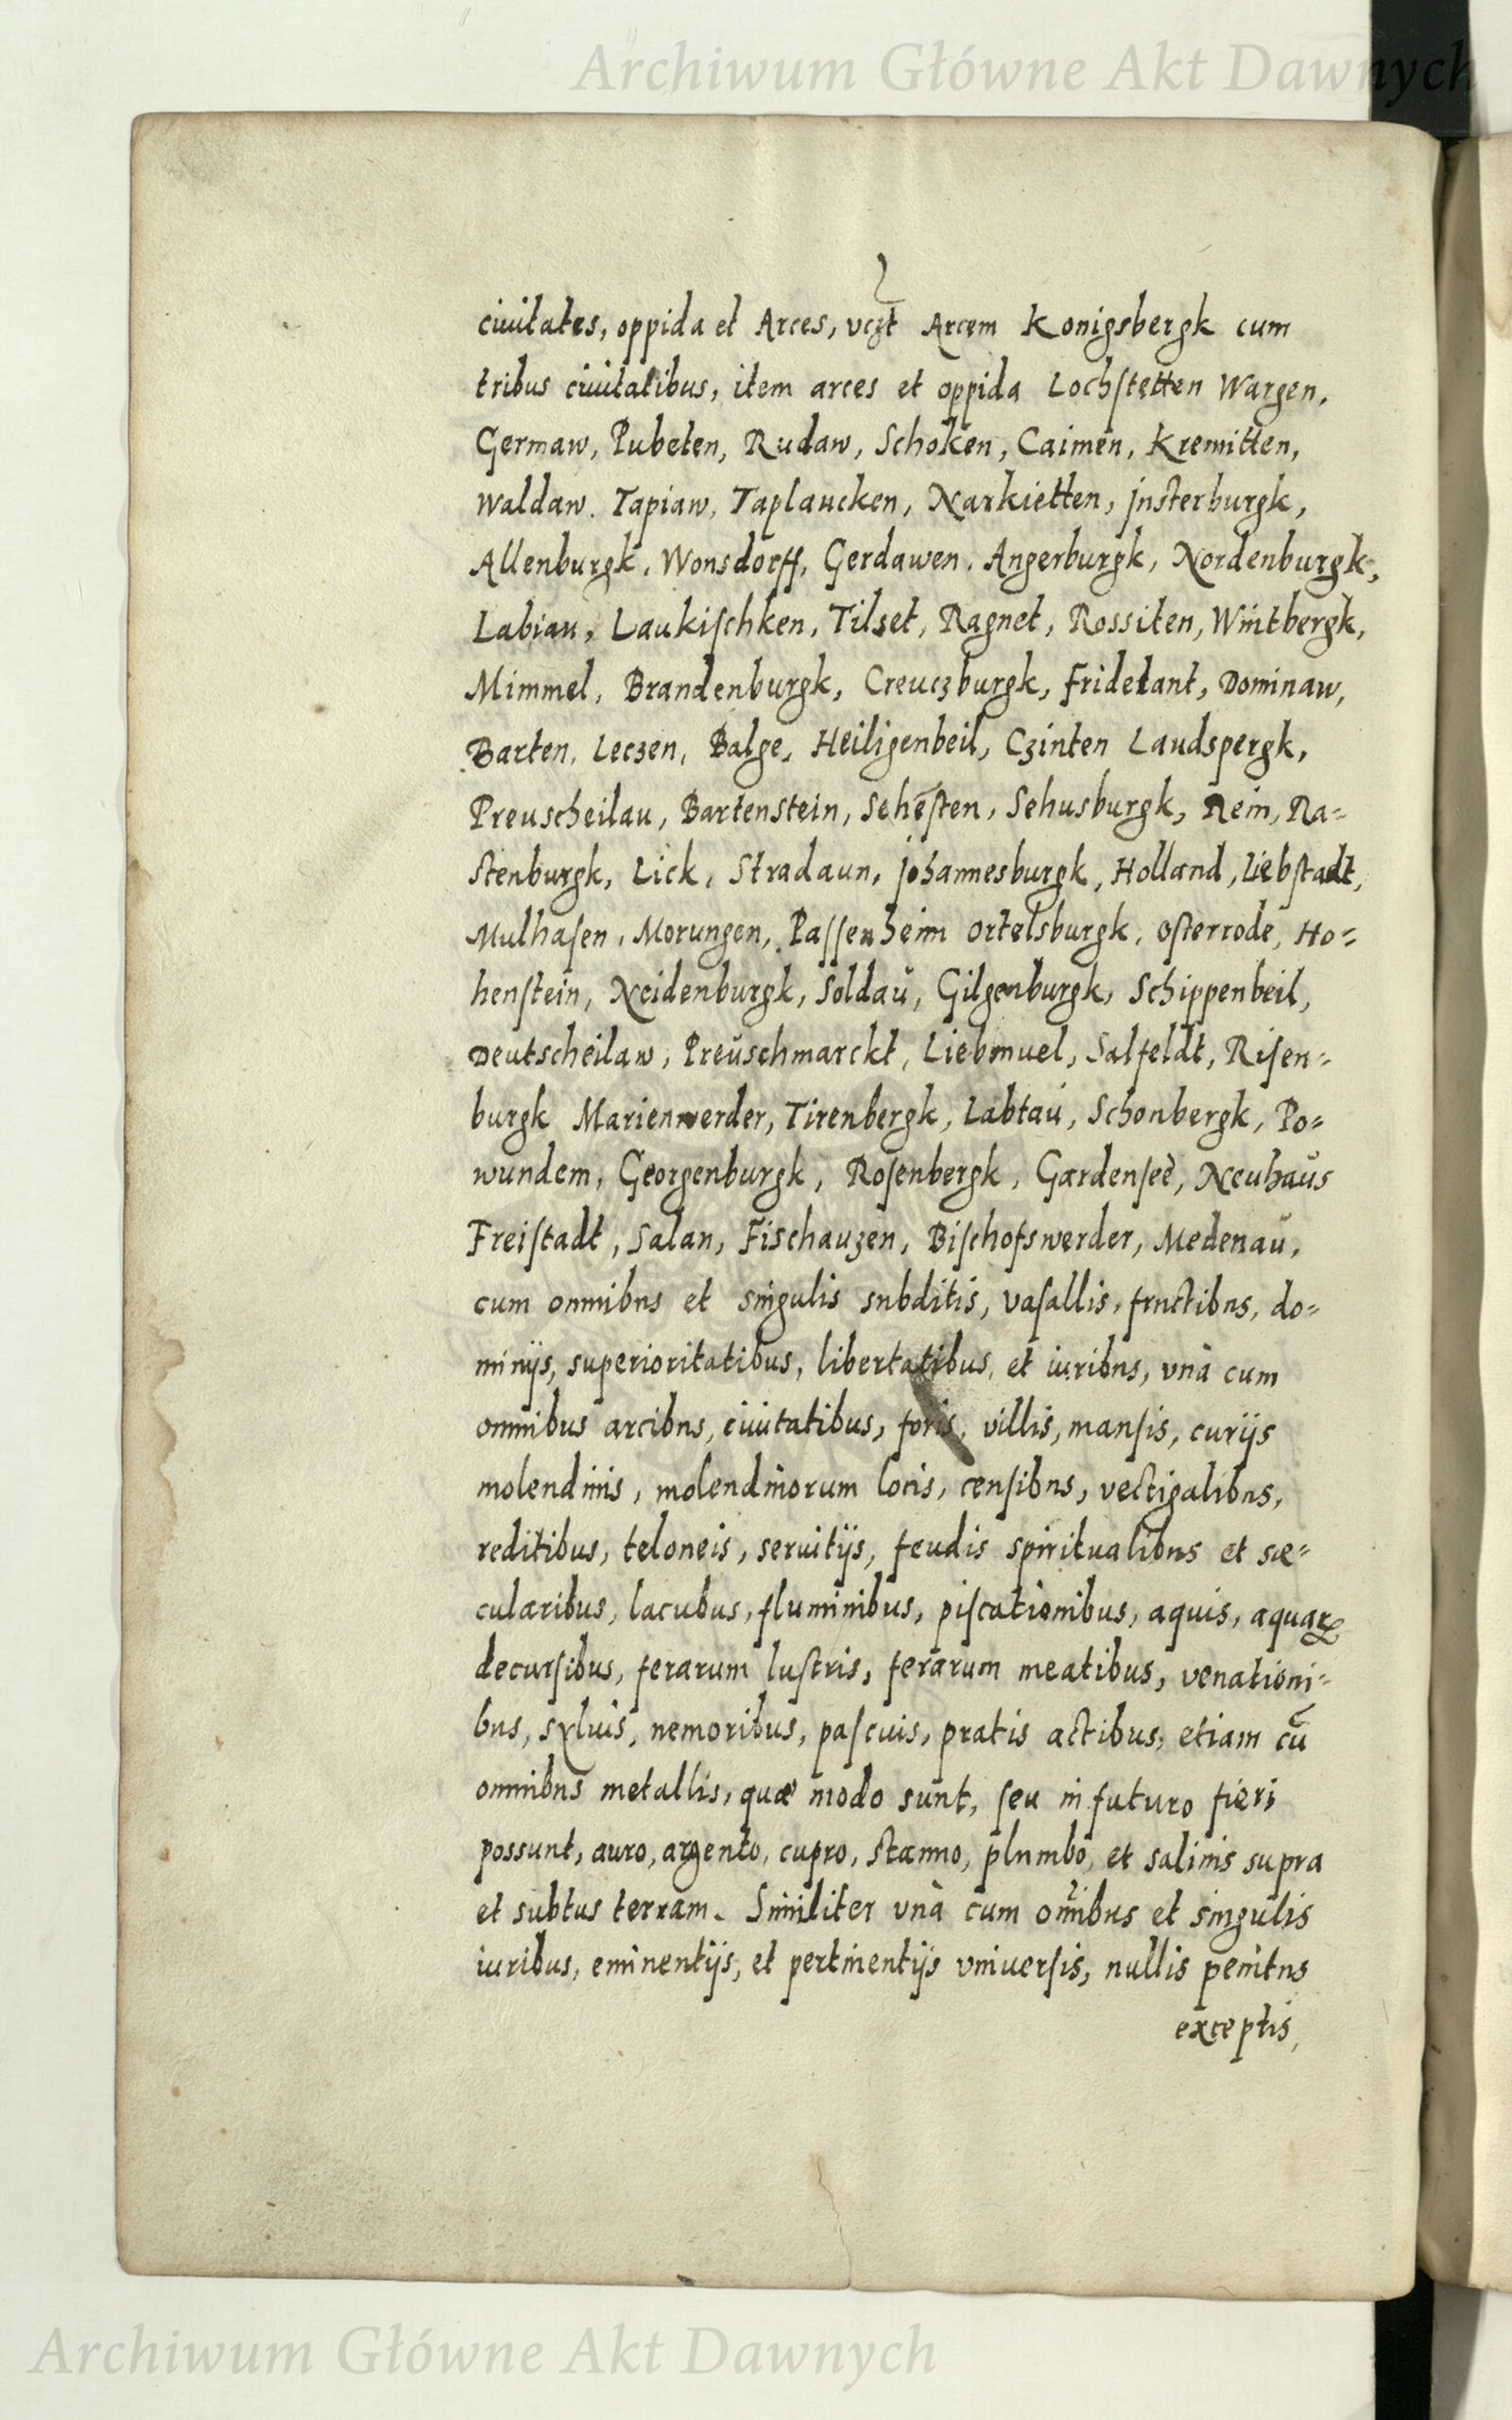 Archiwum Główne Akt Dawnych
ciuitates, oppida et Arces, vczt Arcem Konigsbergk cum
tribus ciuitatibus, item arces et oppida Lochstetten Wargen,
Germaw, Pubeten, Rudaw, Schoken, Caimen, Kremitten,
Waldaw. Tapiaw, Taplaucken, Narkietten, jnsterburgk,
Allenburgk, Wonsdorff, Gerdawen, Angerburgk, Nordenburgk,
Labiau, Laukischken, Tilset, Ragnet, Rossiten, Wintbergk,
Mimmel, Brandenburgk, Creuczburgk, Fridelant, Dominaw,
Barten, Leczen, Balge, Heiligenbeil, Czinten Laudspergk,
Preuscheilau, Bartenstein, Sehesten, Sehusburgk, Rein, Ra=
stenburgk, Lick, Stradaun, johannesburgk, Holland, Liebstadt,
Mulhasen, Morungen, Passenheim Ortelsburgk, Osterrode, Ho=
henstein, Neidenburgk, Soldau, Gilgenburgk, Schippenbeil,
Deutscheilaw, Preuschmarckt, Liebmuel, Salfeldt, Risen=
burgk Marienwerder, Tirenbergk, Labtau, Schonbergk, Po=
wundem, Georgenburgk, Rosenbergk, Gardenseè, Neuhaus
Freistadt, Salan, Fischauzen, Bischofswerder, Medenau,
cum omnibus et singulis subditis, vasallis, fructibus, do=
minijs, superioritatibus, libertatibus, et iuribus, vnà cum
omnibus arcibus, ciuitatibus, foris, villis, mansis, curijs
molendinis, molendinorum locis, censibus, vectigalibus,
reditibus, teloneis, seruitijs, feudis spiritualibus et sæ=
cularibus, lacubus, fluminibus, piscationibus, aquis, aquarꝝ
decursibus, ferarum lustris, ferarum meatibus, venationi=
bus, syluis, nemoribus, pascuis, pratis actibus, etiam cū
omnibus metallis, quæ modo sunt, seu in futuro fieri
possunt, auro, argento, cupro, stanno, plumbo, et salinis supra
et subtus terram. Similiter vnà cum omībus et singulis
iuribus, eminentijs, et pertinentijs vniuersis, nullis penitus
exceptis,
Archiwum Główne Akt Dawnych